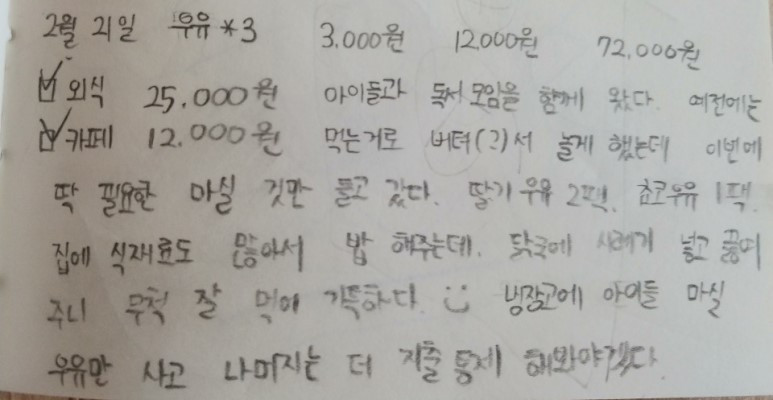 2월 21일 우유*3 3.000원 12.000원 72.000원
외식 25.000원 아이들과 독서모임을 함께 왔다. 예전에는
카페 12.000원 먹는거로 버텨(?)서 놀게 했는데 이번에
딱 필요한 마실 것만 들고 갔다. 딸기우유 2팩. 쵸코우유 1팩.
집에 식재료도 많아서 밥 해주는데. 닭국에 시래기 넣고 끓여
주니 무척 잘 먹에 기특하다. 냉장고에 아이들 마실
우유만 사고 나머지는 더 지출 통제 해봐야겠다.